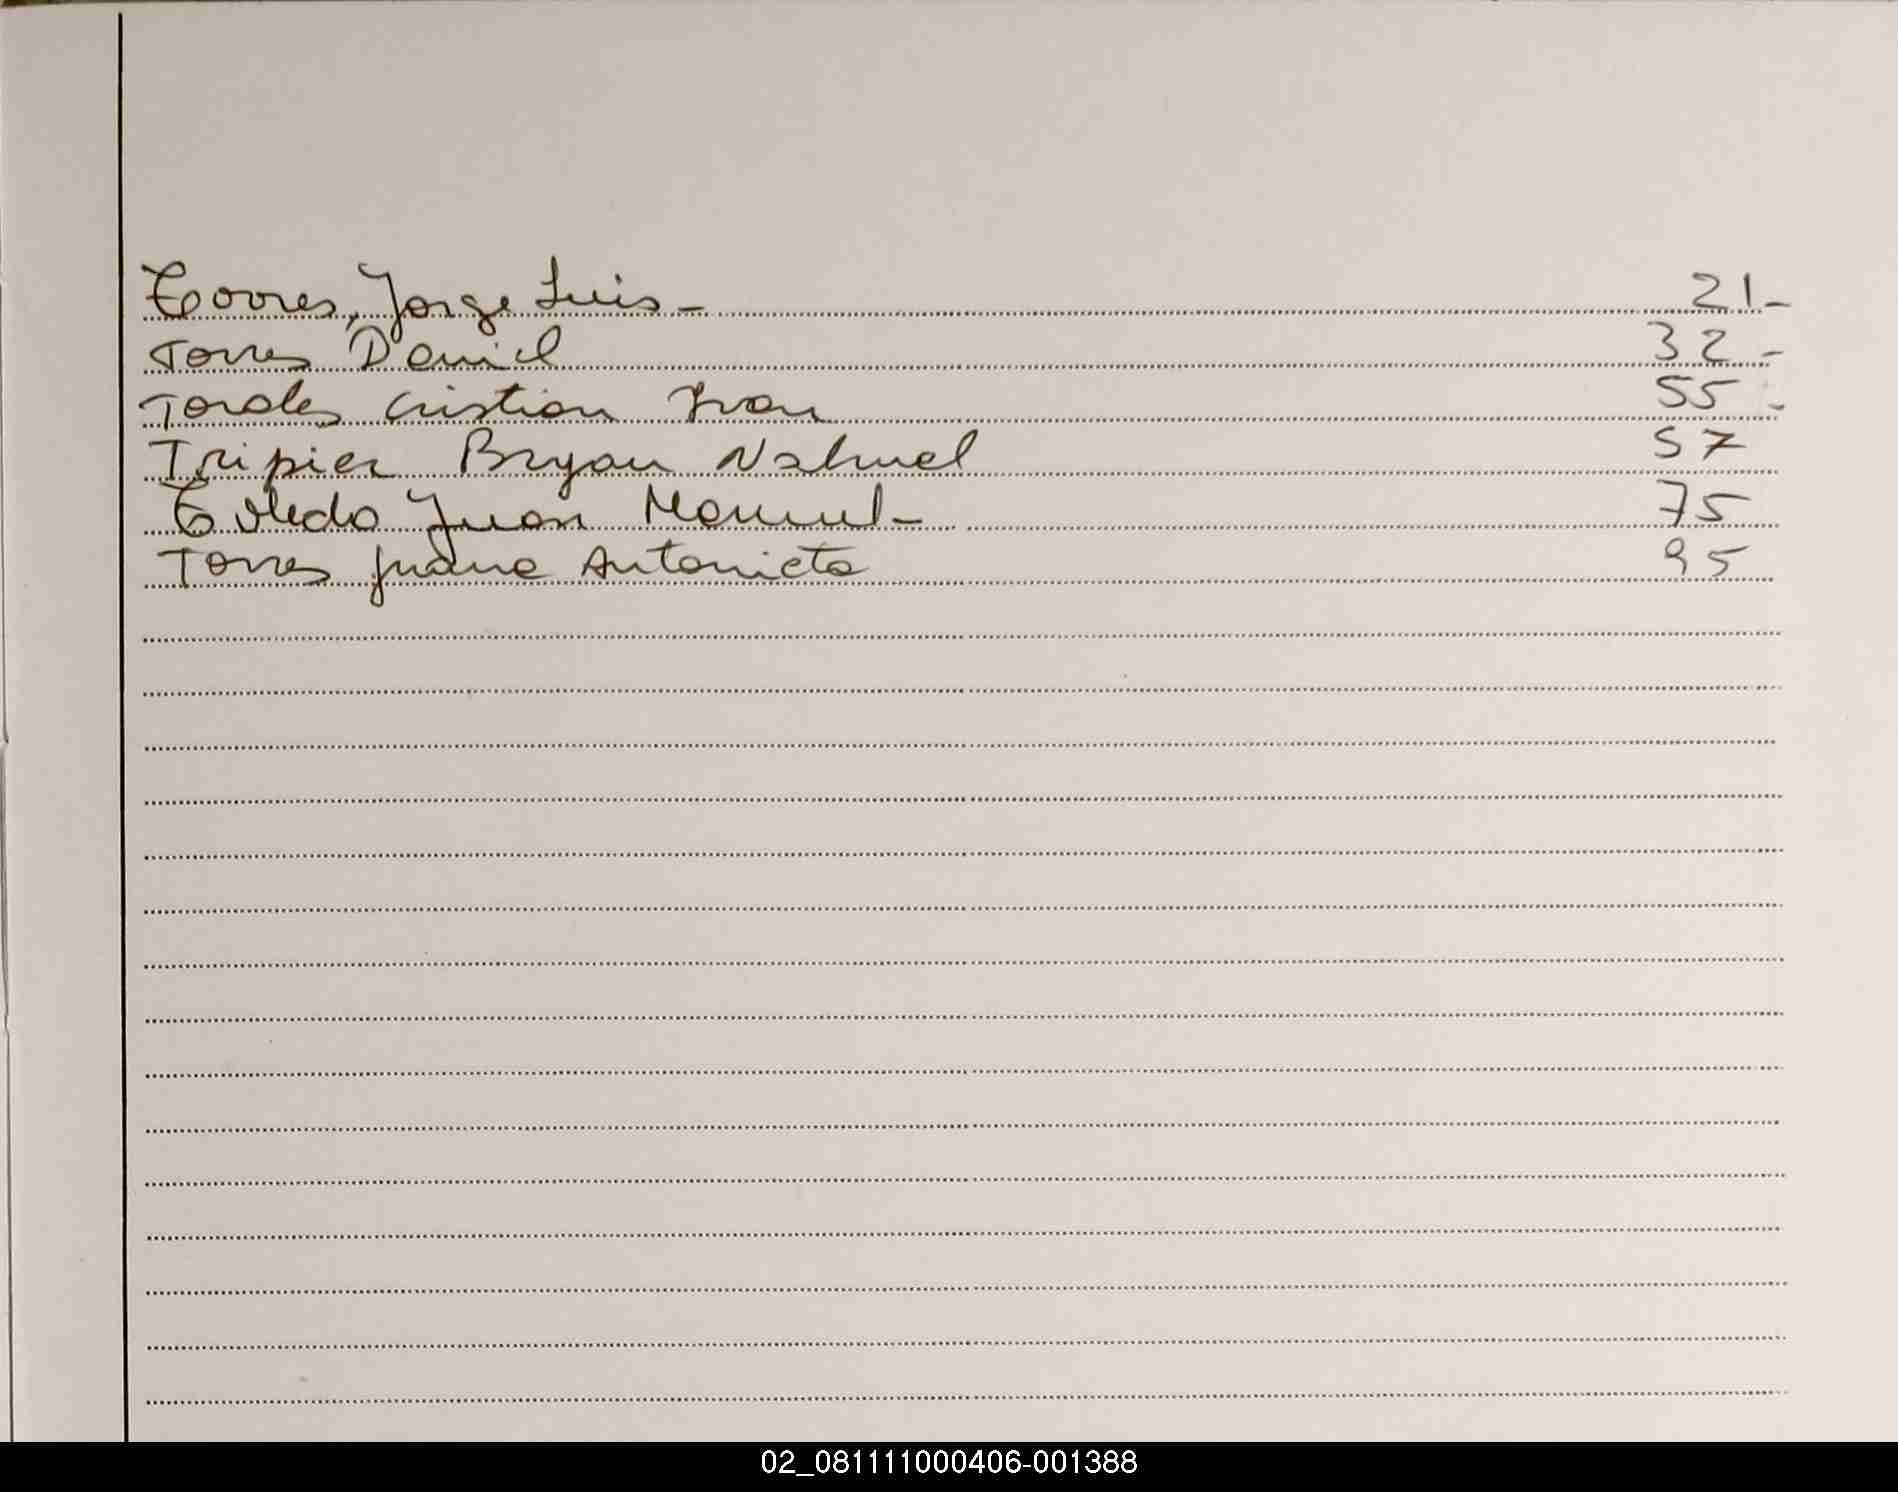 Torres, Jorge Luis - 21 -
Torres Daniel 32 -
Torales Cristian Ivan 55 -
Tripier Bryan Nahuel 57
Toledo Juan Manuel - 75
Torres Juana Antonieta 95
02_081111000406-001388